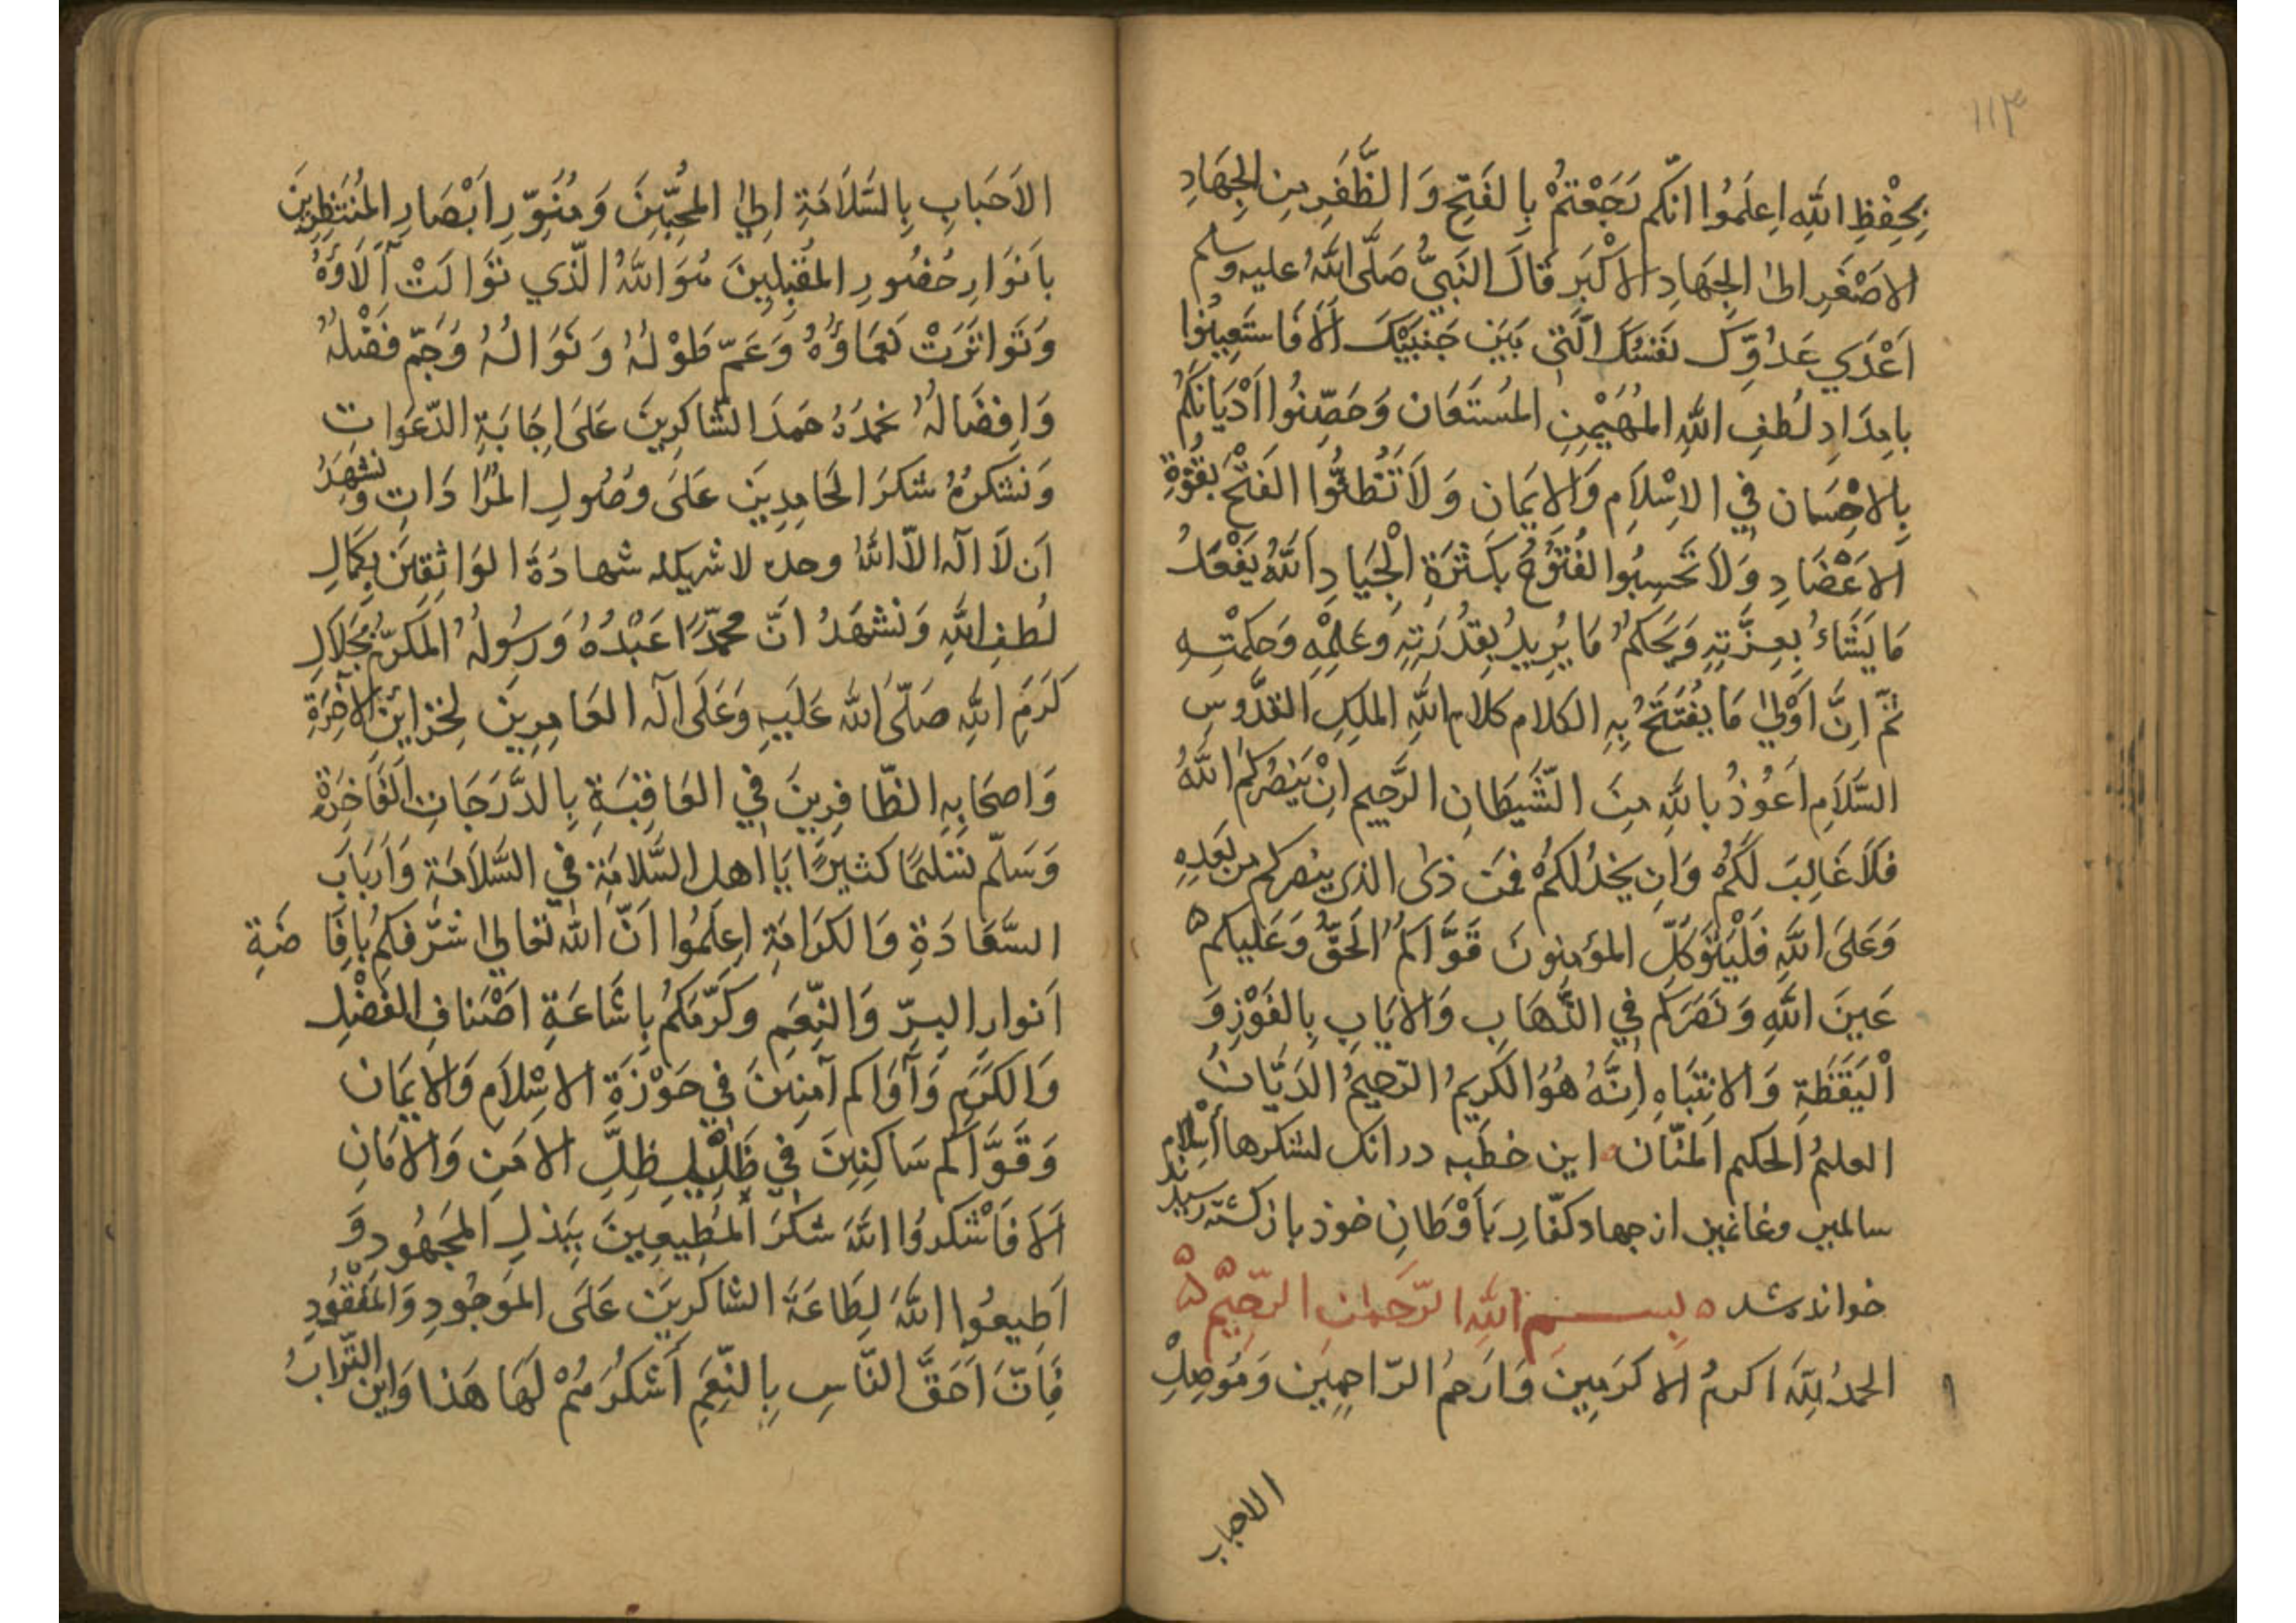 ۱۱۳
بِحِفْظِ اللهِ اِعلَمُوا انَّكم رَجَعْتمُْ بِالفَتحِ وَالظَّفَرِ مِن الجِهَادِ
الاصْغَرِ الىٰ الجِهَادِ الاكْبَرِ قَالَ النَبيُّ صَلَّى اللهُ عليه وسلم
اَعْدَي عَدُوِّكَ نَفسُكَ الَّتى بَيَن جَنبَيْكَ اَلاَ فَاستَعِينُوا
بامِدَادِ لُطفِ اللهِ المُهَيْمِنِ المُستَعَان وَحَصِّنُوا اَدْيَانَكُم
بِالاحْسَان في الاِسْلاَمِ وَالايمَان وَلاَ تَظُنُّوا الفَتْحَ بقُوَّةِ
الاعْضَادِ وَلاَ تَحْسِبُوا الفُتُوْحَ بكَثرَةِ الْجِيَادِ اَللهُ يَفْعَلُ
مَا يَشَاءُ بعِزَّتِهِ وَيَحكمُ مَا يُرِيدُ بِقدُرَتِهِ وَعِلمِْهِ وَحِكمْتِهِ
ثمّ اِنَّ اَوْلىٰ مَا يفُتَتَحُ بِهِ الكلام كلام اللهِ الملِكِ القدُّوسِ
السَّلاَمِ اَعُوذُ باللهِ مِنَ الشَّيطَانِ الرَّجيمِ اِنْ يَنصُركمُ اللهُ
فَلاَ غَالِبَ لَكُمْ وَاِن يَخذُلكمُْ فمَن ذَى الذى ينصركم من بَعَدِهِ
وَعَلىَ اللهِ فَليَتَوَكلِّ المؤمِنونَ قَوَّاكمُ الَحَقُّ وَعَلَيكم ۵
عَينَ اللهِ وَنَصَرَكم في الذَّهَابِ وَالايَابِ بِالفَوْزِ وَ
اْليَقَظَةِ وَالانِتبَاهِ اِنَّهُ هُوَ الكَريمُ الرّحيمُ الدَيَّانُ
العليُم الَحكيم المَنّان ۰ اين خطبه درانك لشكرها اسلام
سالمين وغانمين از جهاد كفّارِ بَاَوْطَانِ خوذ باز كشته رسيدند
خوانده شد ۵ بِسم اللهِ الرّحَمانِ الرّحِيْم ۵۵
الحمدُ لِلهَِّ اكرمُ الاكرَمِينَ وَارَحمُ الرّاحِمِيَن وَمُوَصِلِ
الاحباب
الاَحَبابِ بِالسَّلاَمَةِ اِليٰ المحُبّيِنَ وَمُنَوِّرِ اَبْصَارِ المُنتَظِرِينَ
باَنوَارِ حُضُورِ المقُبِلِيِنَ هُوَ اللهُ الّذي تَوَالَتْ آلَاؤهُ
وَتَوَاترَتْ نَعمَاؤُهُ وَعَمّ طَوْلهُ وَنَوَالُهُ وَجَمّ فَضْلهُ
وَاِفضَالهُ نحَمدُهُ حَمدَ الشَّاكِرِينَ عَلىَ اِجَابَةِ الدّعَوَاتِ
وَنَشكرُهُ شُكرَ الحَامِدِينَ عَلىَ وُصُولِ المُرَادَاتِ وَنشهَدُ
اَن لاَ اله الاّ اللهُ وحده لا شريكله شهادَةَ الوَاثِقِيَن بِكمَالِ
لُطفِ اللهِ وَنشهَدُ انّ محمّدًا عَبْدُهُ وَرسُولهُ المكرّم بجَلاَلِ
كرَمَ اللهِ صَلّىَ اللهُ عَلَيهِ وَعَلَى اله العَامِرِين لِخزائن الآخِرَةِ
وَاصحَابِهِ الظّافِرِينَ في العَاقِبَةِ بِالدَّرَجَاتِ الَفاخِرَةِ
وَسَلّم تسليمًا كثيرًا يَا اهل السَّلاَمَةِ في السَّلاَمَةِ وَاَربَابَ
السَّعَادَةِ وَالكَرَامَةِ اِعلَمُوا اَنّ الله تعالىٰ شرّفكم بافِاضَةِ
اَنوارِ البِرّ وَالنِّعَمِ وكَرّمَكمُ باِشَاعَةِ اصْنَافِ الفَضْلِ
وَالكَرَمِ وَآوَاكم آمنِينَ في حَوْزَةِ الاسْلاَمِ وَالايمَان
وَقَوَّاكم سَاكِنِينَ في ظَلِيْلِ ظِلِّ الامَنِ وَالامَانِ
اَلاَ فَاشْكروُا اللهَ شكرَ المُطِيعِينَ بِبَذلِ المَجهُودِ وَ
اَطِيعُوا اللهَ لِطَاعَةَ الشاكرِينَ عَلىَ الموَجُودِ وَالمَفْقُودِ
فَاِنّ اَحَقَّ النَّاسِ بِالنِّعَمِ اَشكَرُهُمْ لَهَا هَذا وَاين التُرابُ